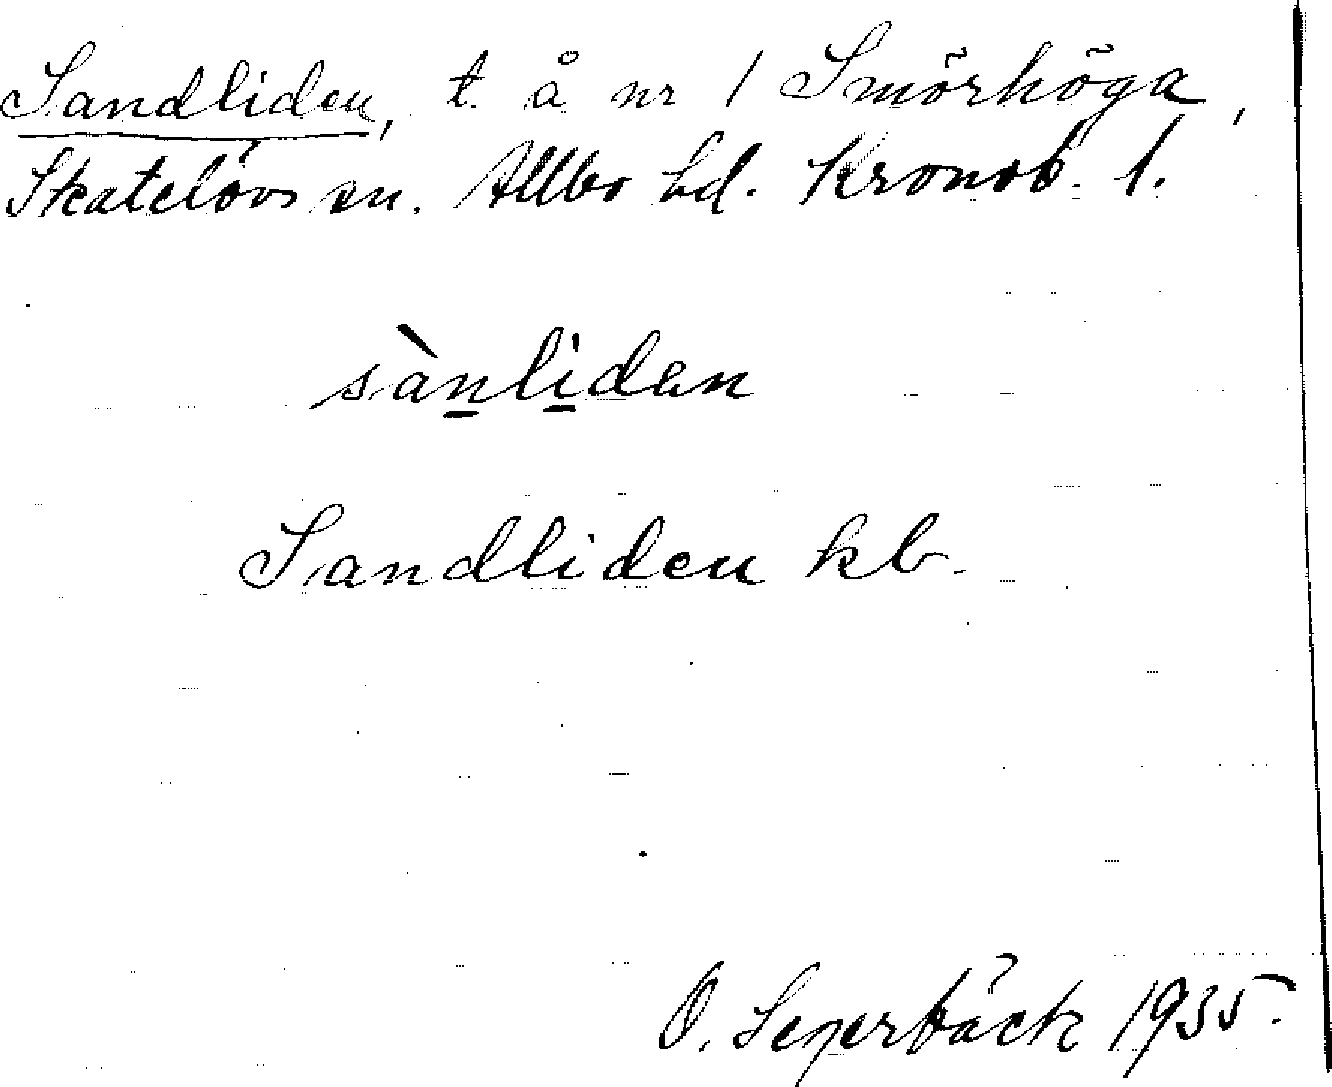 Sandliden, t. å nr 1 Smörhöga,
Skatelövs sn. Allbo hd. Kronob. l.
sànliden
Sandliden kb.
O. 1935.